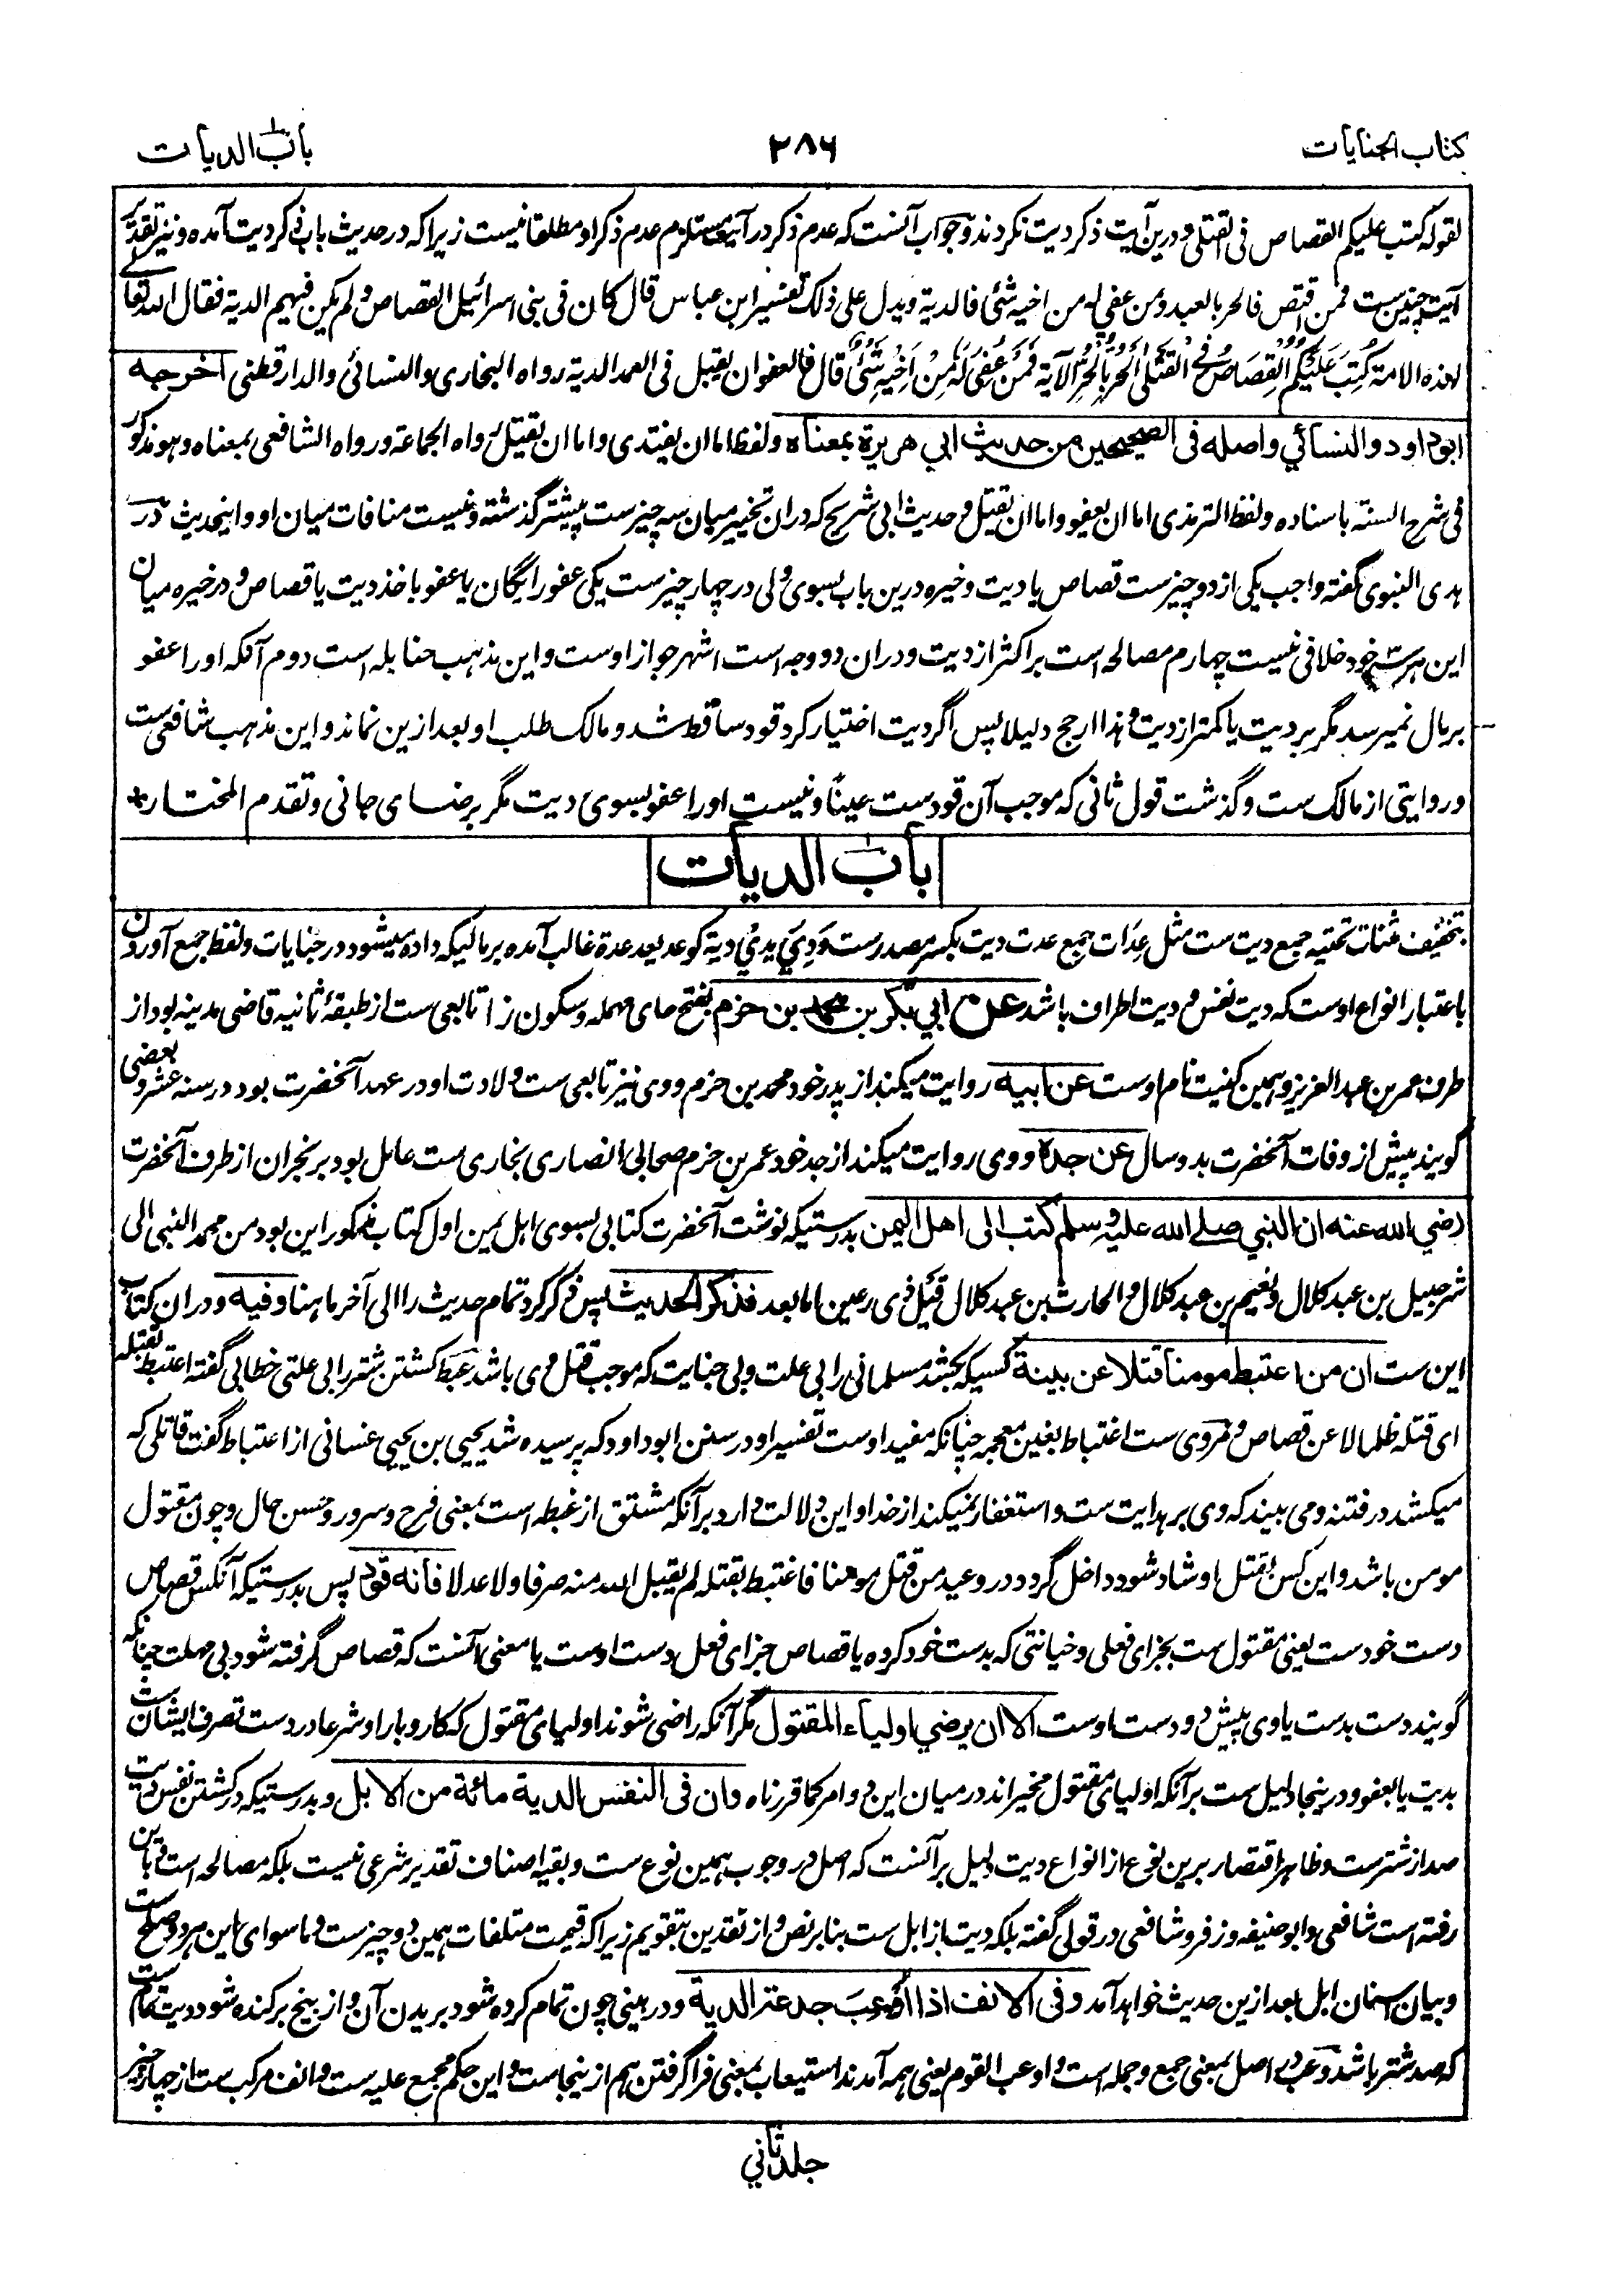 کتاب الجنایات
۳۸۶
باب الدیات
لقوله کتب علیکم القصاص فی القتلی و درین آیت ذکر دیت نکردند و جواب آنست که عدم ذکر در آیت مستلزم عدم ذکر او مطلقا نیست زیرا که در حدیث باب ذکر دیت آمده و نیز تقدیر
آیت چنین ست فمن اقتص فالحر بالعبد و من عفی له من اخیه شئ فالدیة و یدل علی ذلک تفسیر ابن عباس قال کان فی بنی اسرائیل القصاص و لم یکن فیهم الدیة فقال الله تعالی
لهذه الامة کُتِبَ عَلَیْکُمُ الْقِصَاصُ فِی الْقَتْلَی الْحُرُّ بِالْحُرِّ الآیة فَمَنْ عُفِیَ لَهُ مِنْ اَخِیْهِ شَئٌ قال فالعفو ان یقبل فی العمد الدیة رواه البخاری والنسائی والدارقطنی اخرجه
ابو داود والنسائي واصله فی الصحیحین من حدیث ابي هریرة بمعناه و لفظ اما ان یفتدی و اما ان یقتل رواه الجماعة و رواه الشافعی بمعناه و هو مذکور
فی شرح السنة باسناده و لفظ الترمذی اما ان یعفو و اما ان یقتل و حدیث ابی شریح که دران تخییر میان سه چیز ست پیشتر گذشته و نیست منافات میان او و اینحدیث در
هدی النبوی گفته واجب یکی از دو چیزست قصاص یا دیت و خیره درین باب بسوی ولی در چهار چیزست یکی عفو رایگان یا عفو باخذ دیت یا قصاص و در خیره میان
این هر سه خود خلافی نیست چهارم مصالحه است بر اکثر از دیت و دران دو وجه است اشهر جواز اوست و این مذهب حنابله است دوم آنکه او را عفو
بر مال نمیرسد مگر بر دیت یا کمتر از دیت و هذا ارجح دلیلا پس اگر دیت اختیار کرد قود ساقط شد و مالک طلب او بعد ازین نماند و این مذهب شافعی ست
و روایتی از مالک ست و گذشت قول ثانی که موجب آن قودست عینًا و نیست او را عفو بسوی دیت مگر برضای جانی و تقدم المختار *
باب الدیات
بتخفیف مثنات تحتیه جمع دیت ست مثل عِدَات جمع عدت دیت بکسر مصدرست وَدِیَ یدی دیة کوعد یعد عدة غالب آمده بر مالیکه داده میشود در جنایات و لفظ جمع آوردن
باعتبار انواع اوست که دیت نفس و دیت اطراف باشد عن ابي بکر بن محمد بن حزم بفتح حای مهمله و سکون زا تابعی ست از طبقهٔ ثانیه قاضی مدینه بود از
طرف عمر بن عبد العزیز و همین کنیت نام اوست عن ابیه روایت میکند از پدر خود محمد بن حزم و وی نیز تابعی ست ولادت او در عهد آنحضرت بود در سنه عشر و بعضی
گویند پیش از وفات آنحضرت بدو سال عن جده و وی روایت میکند از جد خود عمر بن حزم صحابی انصاری بخاری ست عامل بود بر نجران از طرف آنحضرت
رضي الله عنه ان النبي صلے الله علیه وسلم کتب الی اهل الیمن بدرستیکه نوشت آنحضرت کتابی بسوی اهل یمن اول کتاب مذکور این بود من محمد النبی الی
شرحبیل بن عبد کلال و نعیم بن عبد کلال و الحارث بن عبد کلال قیل ذی رعین اما بعد فذکر الحدیث پس ذکر کرد تمام حدیث را الی آخر ما هنا وفیه و دران کتاب
این ست ان من اعتبط مومنا قتلا عن بینة کسیکه بکشد مسلمانی را بی علت و بی جنایت که موجب قتل وی باشد عبط کشتن شتر را بی علتی خطابی گفته اعتبط بقتله
ای قتله ظلما لا عن قصاص و مروی ست اغتباط بغین معجمه چنانکه مفید اوست تفسیر او در سنن ابو داود که پرسیده شد یحیی بن یحیی غسانی از اعتباط گفت قاتلی که
میکشد در فتنه و می بیند که وی بر هدایت ست و استغفار نمیکند از خدا و این دلالت دارد بر آنکه مشتق از غبطه است بمعنی فرح و سرور و حسن حال و چون مقتول
مومن باشد و این کس بقتل او شاد شود داخل گردد در وعید من قتل مومنا فاغتبط بقتله لم یقبل الله منه صرفا ولا عدلا فانه قود پس بدرستیکه آنکس قصاص
دست خودست یعنی مقتول ست بجزای فعلی و خیانتی که بدست خود کرده یا قصاص جزای فعل دست اوست یا معنی آنست که قصاص گرفته شود بی مهلت چنانکه
گویند دست بدست یا وی پیش دو دست اوست الا ان یرضي اولیاء المقتول مگر آنکه راضی شوند اولیای مقتول که کار و بار او شرعا در دست تصرف ایشان ست
بدیت یا بعفو و درینجا دلیل ست بر آنکه اولیای مقتول مخیر اند در میان این دو امر کما قررناه وان فی النفس الدیة مائة من الابل و بدرستیکه در کشتن نفس دیت
صد از شترست و ظاهر اقتصار برین نوع از انواع دیت دلیل بر آنست که اصل در وجوب همین نوع ست و بقیه اصناف تقدیر شرعی نیست بلکه مصالحه است و باین
رفته است شافعی و ابو حنیفه و زفر و شافعی در قولی گفته بلکه دیت باز ابل ست بنا بر نص و از نقدین بتقویم زیرا که قیمت متلفات همین دو چیزست و ما سوای این هر دو صلح ست
و بیان اسنان ابل بعد ازین حدیث خواهد آمد وفی الانف اذا اوعب جدعه الدیة و در بینی چون تمام کرده شود بریدن آن و از بیخ برکنده شود دیت تمام ست
که صد شتر باشد وعب در اصل بمعنی جمع و جمله است و اوعب القوم یعنی همه آمدند استیعاب بمعنی فرا گرفتن هم ازینجاست و این حکم مجمع علیه ست و انف مرکب ست از چهار چیز
جلد ثاني